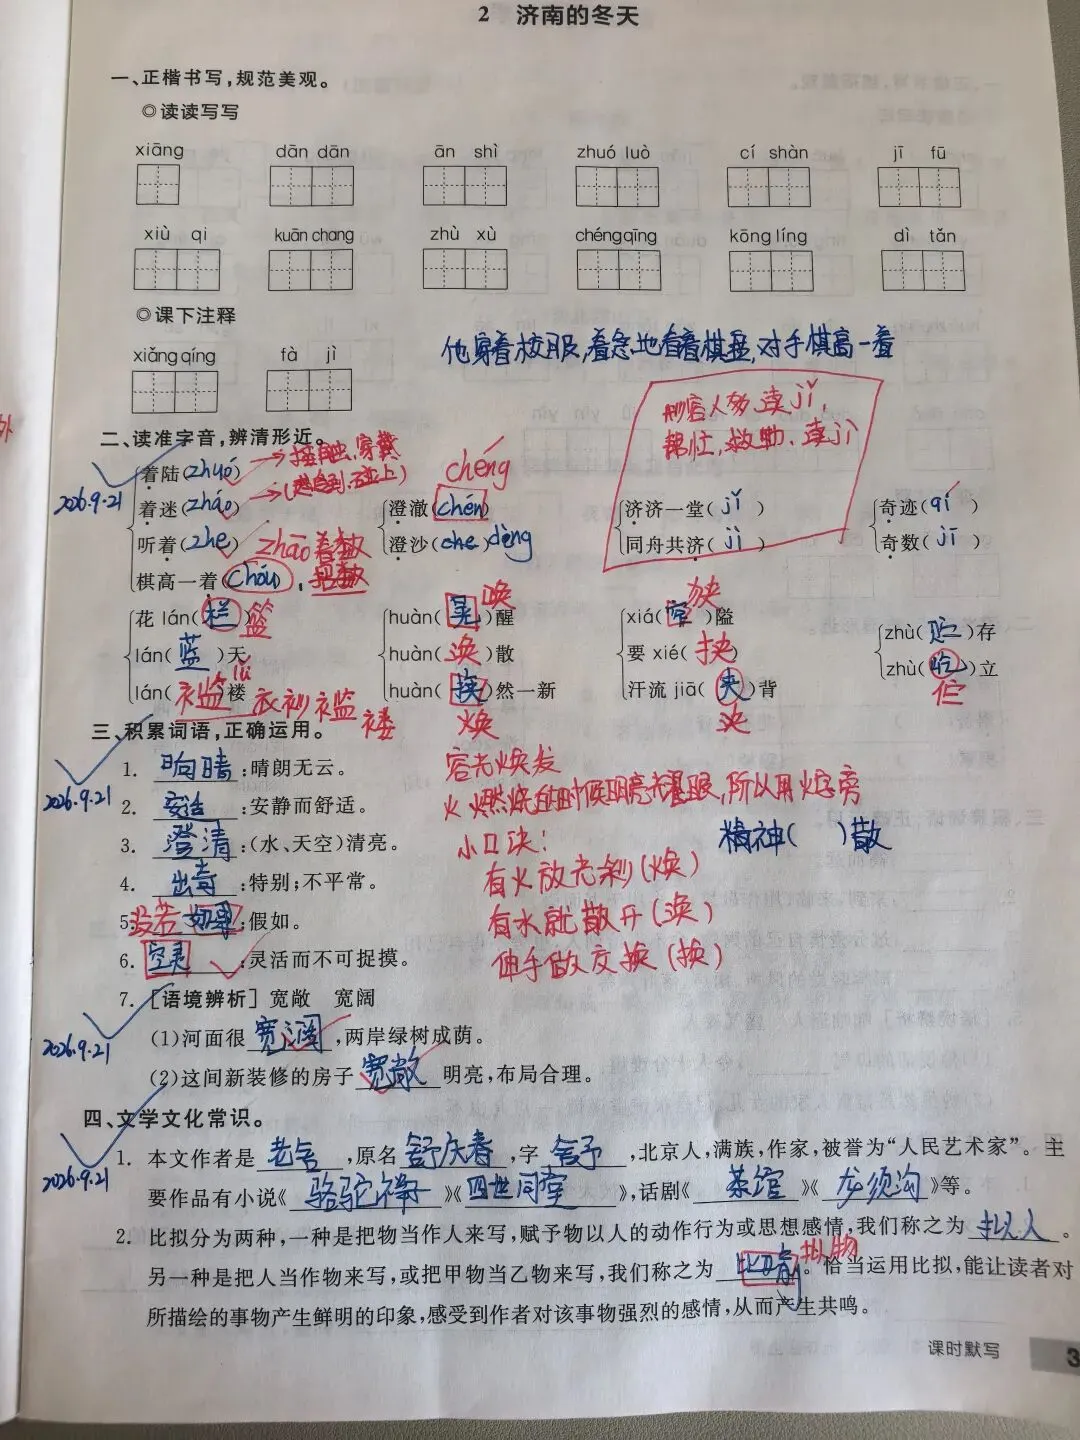 2 济南的冬天
一、正楷书写,规范美观。
◎读读写写
xiāng dān dān ān shì zhuó luò cí shàn jī fū
xiù qi kuān chang zhù xù chéng qīng kōng líng dì tǎn
◎课下注释
xiǎng qíng fà jì
他穿着校服,着急地看着棋盘,对手棋高一着
形容人多,读jǐ,
帮忙、救助、读jì
二、读准字音,辨清形近。
2026.9.21
着陆(zhuó) →接触、穿戴
着迷(zháo) →(感到、碰上)
听着(zhe) zhāo 着数
棋高一着(zhāo)
chéng
澄澈(chén)
澄沙(che) dèng
济济一堂(jǐ)
同舟共济(jì)
奇迹(qí)
奇数(jī)
花 lán(栏) 篮
lán(蓝)天
lán(褴)褛 lǚ 衣衫褴褛
huàn(晃)醒 唤
huàn(涣)散
huàn(换)然一新
焕
xiá(窄)隘 狭
要 xié(挟)
汗流 jiā(夹)背
浃
zhù(贮)存
zhù(屹)立
伫
三、积累词语,正确运用。
2026.9.21
1. 晌晴:晴朗无云。
2. 安适:安静而舒适。
3. 澄清:(水、天空)清亮。
4. 出奇:特别;不平常。
5. 设若 如果:假如。
6. 空灵:灵活而不可捉摸。
容光焕发
火燃烧的时候明亮耀眼,所以用火字旁
小口诀: 精神( )散
有火放光彩(焕)
有水就散开(涣)
伸手做交换(换)
7. [语境辨析] 宽敞 宽阔
2026.9.21
(1)河面很宽阔,两岸绿树成荫。
(2)这间新装修的房子宽敞明亮,布局合理。
四、文学文化常识。
2026.9.21
1. 本文作者是老舍,原名舒庆春,字舍予,北京人,满族,作家,被誉为“人民艺术家”。主
要作品有小说《骆驼祥子》《四世同堂》,话剧《茶馆》《龙须沟》等。
2. 比拟分为两种,一种是把物当作人来写,赋予物以人的动作行为或思想感情,我们称之为拟人。
拟物
另一种是把人当作物来写,或把甲物当乙物来写,我们称之为比喻。恰当运用比拟,能让读者对
所描绘的事物产生鲜明的印象,感受到作者对该事物强烈的感情,从而产生共鸣。
课时默写 3